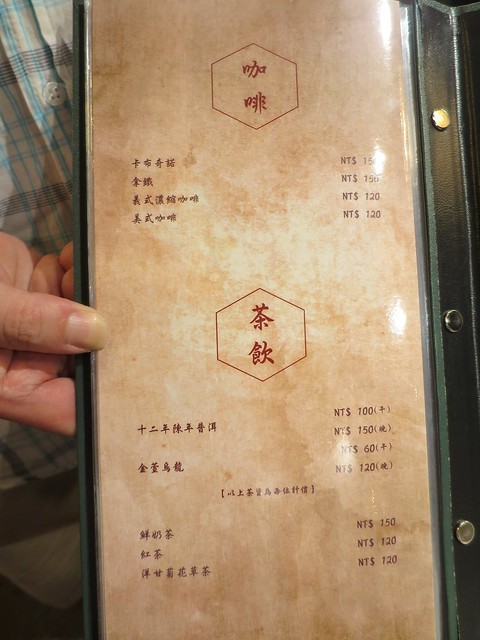 咖
啡
卡布奇諾 NT$ 150
拿鐵 NT$ 150
義式濃縮咖啡 NT$ 120
美式咖啡 NT$ 120
茶
飲
NT$ 100(午)
十二年陳年普洱 NT$ 150(晚)
NT$ 60(午)
金萱烏龍 NT$ 120(晚)
[以上茶資為每位計價]
鮮奶茶 NT$ 150
紅茶 NT$ 120
洋甘菊花草茶 NT$ 120